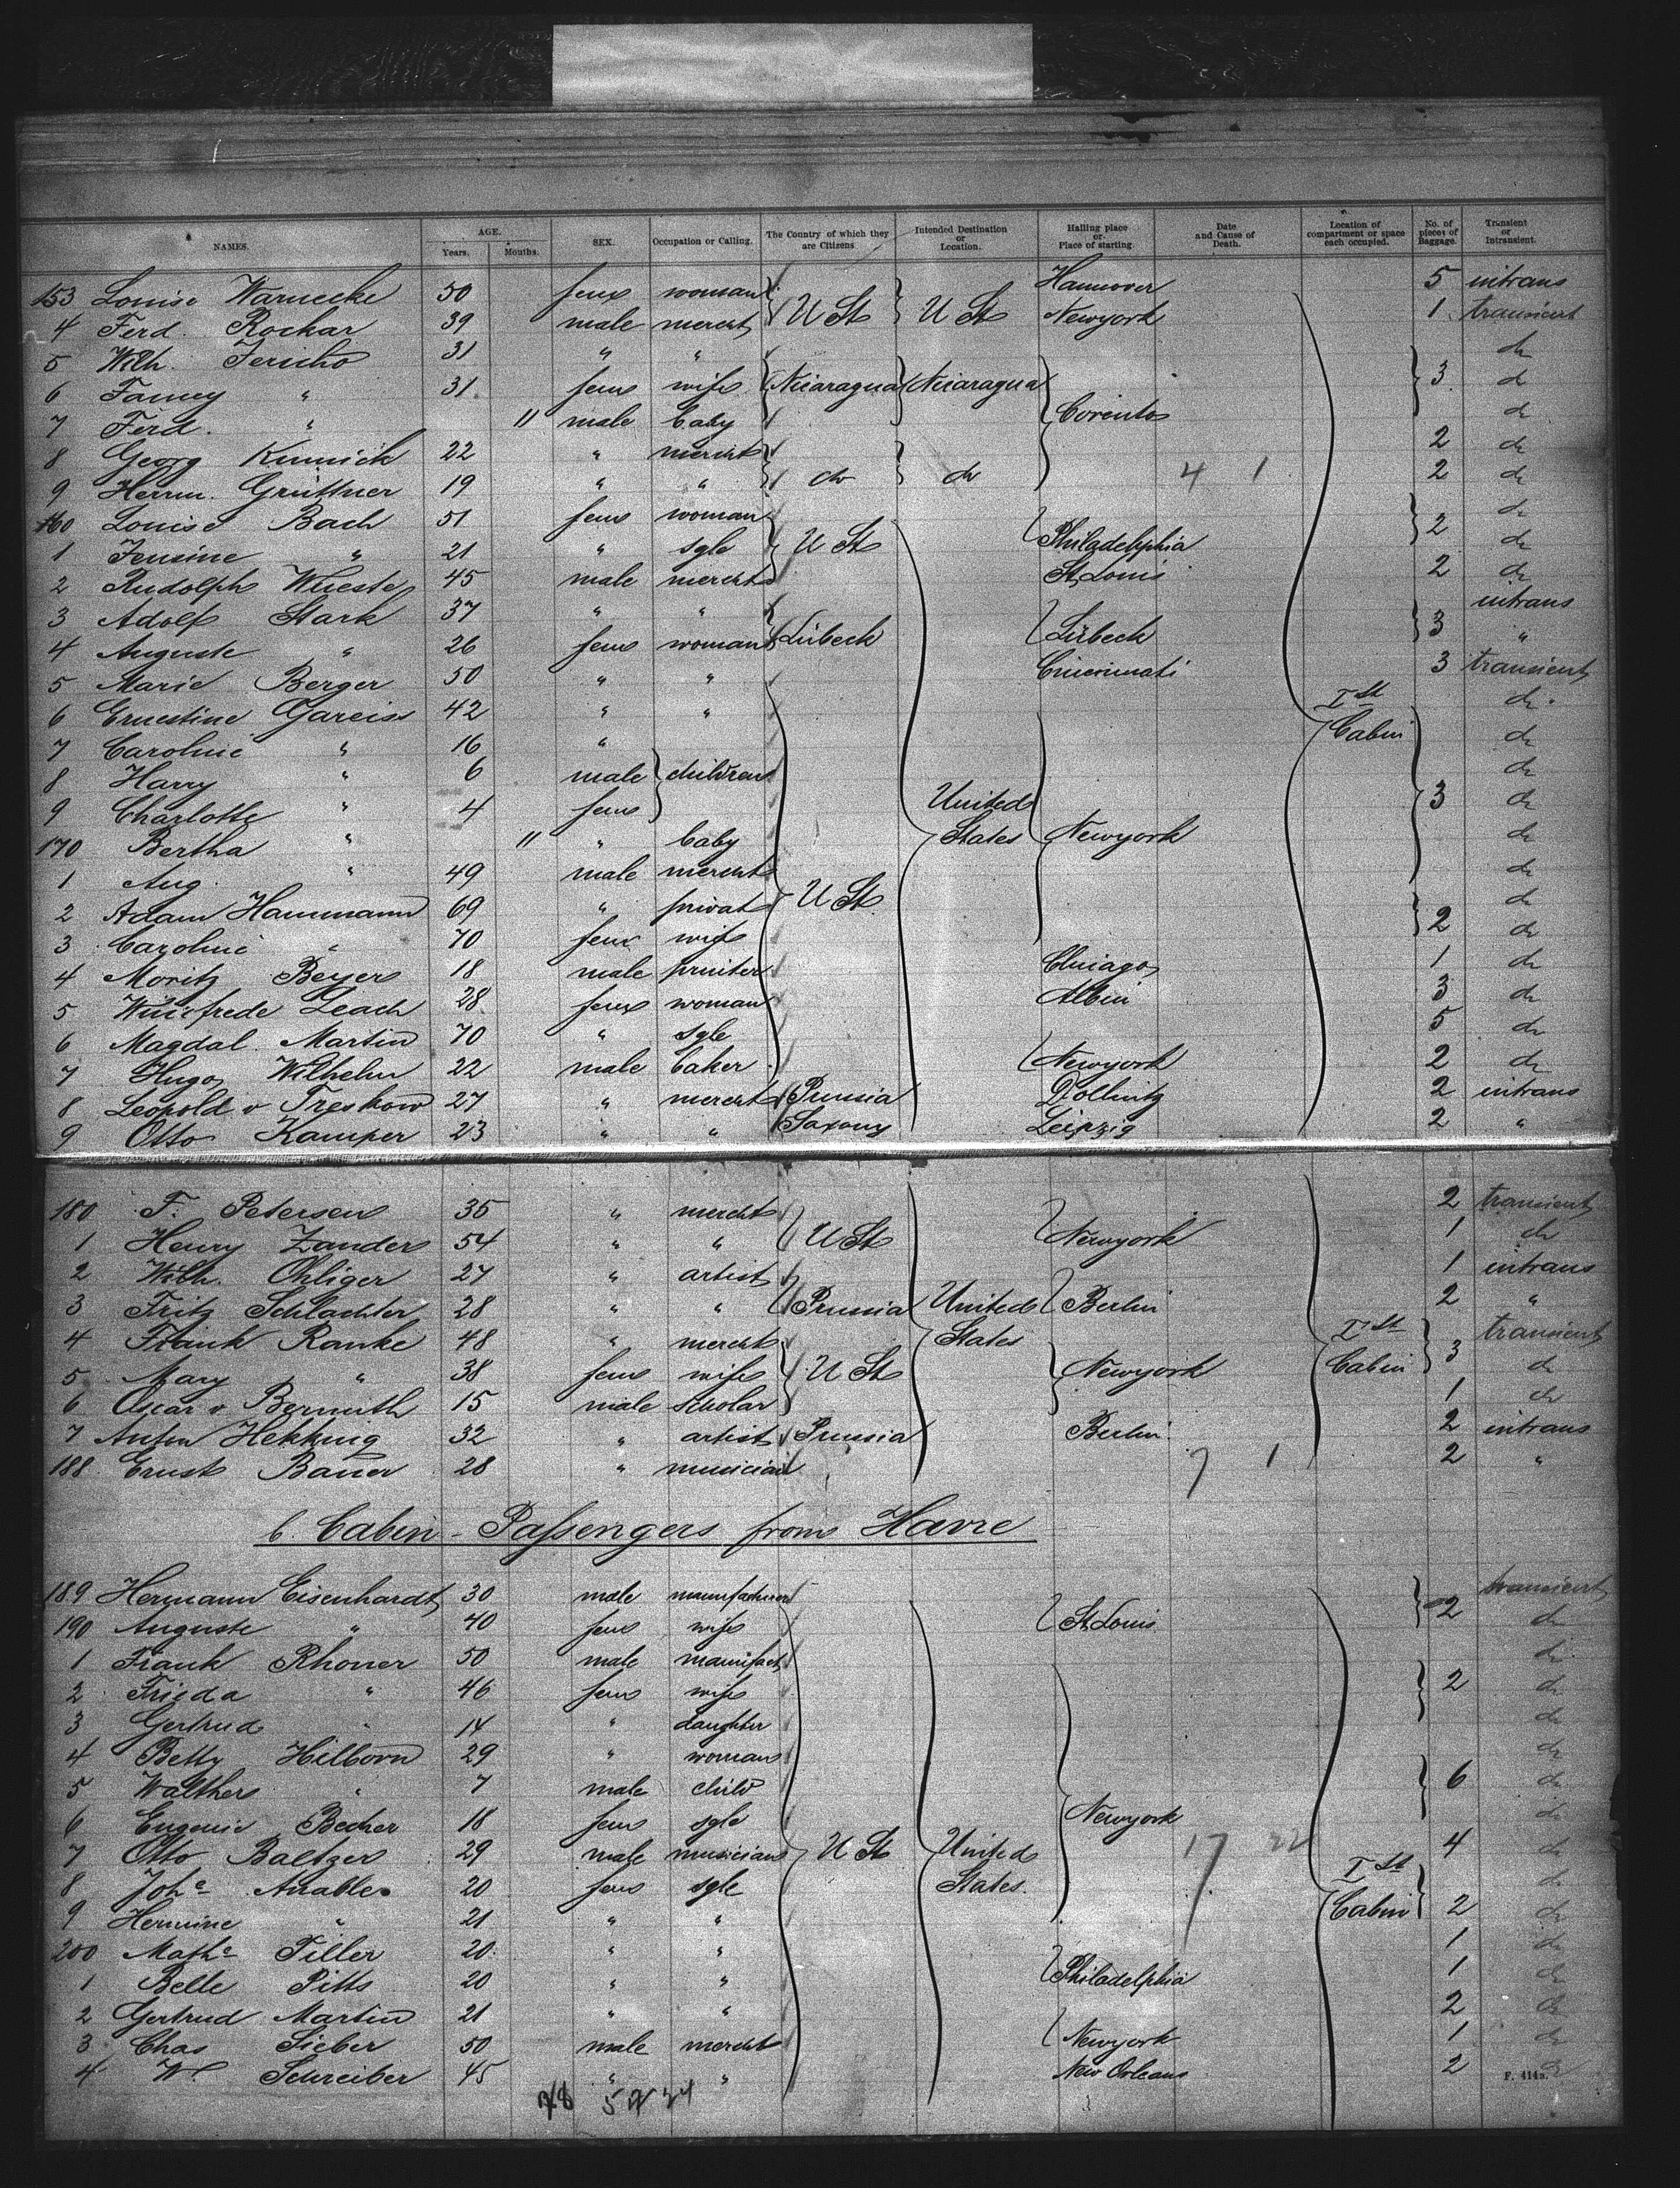 NAMES. AGE. Years. Months. SEX. Occupation or Calling. The Country of which they are Citizens Intended Destination or Location. Hailing place or Place of starting. Date and Cause of Death. Location of compartment or space each occupied. No. of pieces of Baggage. Transient or Intransient.
153 Louise Warnecke 50 fem woman U St U St Hannover 5 intrans
4 Ferd. Rockar 39 male mercht Newyork 1 transient
5 Wilh. Jericho 31 " " do
6 Fanny " 31 fem wife Nicaragua Nicaragua 3 do
7 Ferd. " 11 male baby Corinto do
8 Georg Kinnick 22 " mercht 2 do
9 Herm. Grüttner 19 " " do do 4 1 2 do
160 Louise Bach 51 fem woman do
1 Jensine " 21 " sgle U St Philadelphia 2 do
2 Rudolph Wueste 45 male mercht St. Louis 2 do
3 Adolf Stark 37 " " intrans
4 Auguste " 26 fem woman Lübeck Lübeck 3 "
5 Marie Berger 50 " " Cincinnati 3 transient
6 Ernestine Gareiss 42 " " Ist do
7 Caroline " 16 " Cabin do
8 Harry " 6 male children do
9 Charlotte " 4 fem United 3 do
170 Bertha " 11 " baby States Newyork do
1 Aug. " 49 male mercht do
2 Adam Hammann 69 " privat U St do
3 Caroline " 70 fem wife 2 do
4 Moritz Beyer 18 male printer Chicago 1 do
5 Winifrede Leach 28 fem woman Albin 3 do
6 Magdal. Martin 70 " sgle 5 do
7 Hugo Wilhelm 22 male baker Newyork 2 do
8 Leopold v Treskow 27 " mercht Prussia Dollnitz 2 intrans
9 Otto Kamper 23 " " Saxony Leipzig 2 "
180 F. Petersen 35 " mercht 2 transient
1 Henry Zander 54 " " U St Newyork 1 do
2 Wilh. Ohliger 27 " artist 1 intrans
3 Fritz Schlachter 28 " " Prussia United Berlin 2 "
4 Frank Ranke 48 " mercht States Ist transient
5 Mary " 38 fem wife U St Newyork Cabin 3 do
6 Oscar v. Bernuth 15 male scholar 1 do
7 Anton Hekking 32 " artist Prussia Berlin 2 intrans
188 Ernst Bauer 28 " musician 7 1 2 "
b. Cabin-Passengers from Havre
189 Hermann Eisenhardt 30 male manufacturer transient
190 Auguste " 40 fem wife St. Louis 2 do
1 Frank Rhoner 50 male manufact do
2 Frieda " 46 fem wife 2 do
3 Gertrud " 14 " daughter do
4 Betty Hilborn 29 " woman do
5 Walther " 7 male child 6 do
6 Eugenie Becker 18 fem sgle Newyork do
7 Otto Baltzer 29 male musician U St United 17 22 4 do
8 Johe Anable 20 fem sgle States. Ist do
9 Hermine " 21 " " Cabin 2 do
200 Mathe Tiller 20 " " 1 do
1 Belle Pitts 20 " " Philadelphia 1 do
2 Gertrud Martin 21 " " 2 do
3 Chas Sieber 50 male mercht Newyork 1 do
4 W. Schreiber 45 " " New Orleans 2 do
F. 414a.